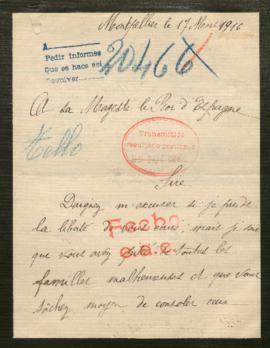 Montpellier le 17 Mars 1916
A
Pedir informes
Que se hace en
devolver
20466
A Sa Majesté le Roi d'Espagne
Transmitido
Sire
Daignez m'excuser si je prends
la liberté de vous mais je sais
que vous avez de toutes les
familles malheureuses et que vous
tâchez moyen de consoler ceux
Fecho